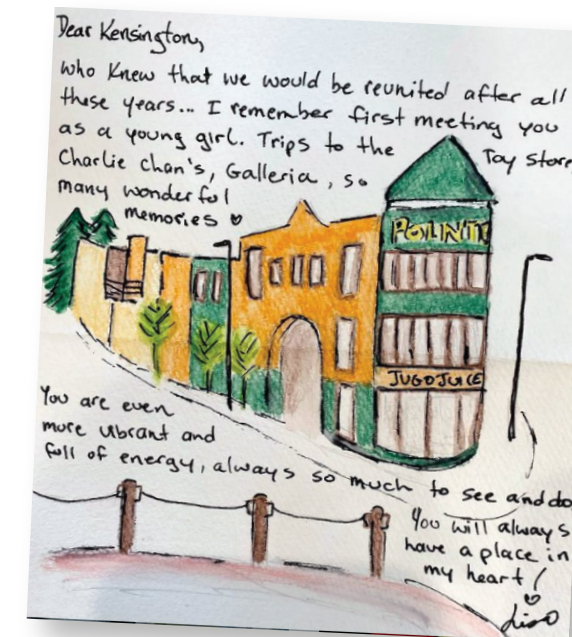 Dear Kensington,
who knew that we would be reunited after all
these years... I remember first meeting you
as a young girl. Trips to the Toy Store,
Charlie Chan's, Galleria, so
many wonderful
memories ♡
POINT
JUGO JUICE
You are even
more vibrant and
full of energy, always so much to see and do
You will always
have a place in
my heart!
♡
Lisa